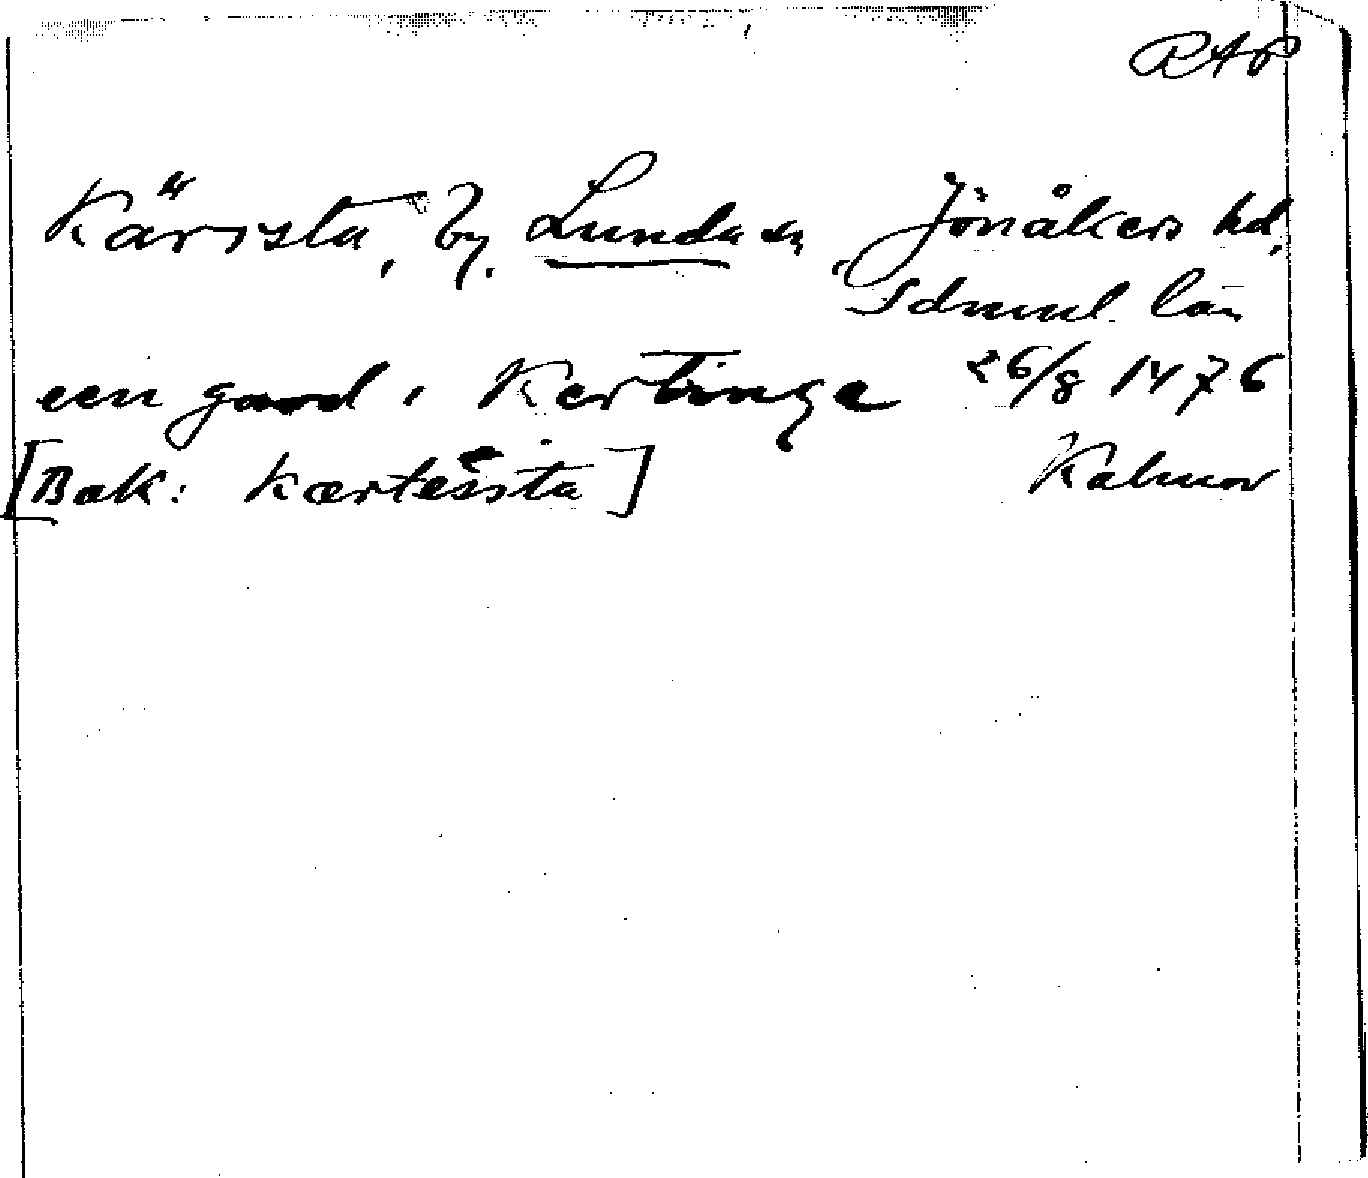 RAP
Kärrsta, by, Lunda sn, Jönåkers hd,
Sdmnl. län
een gaard i Kertinge 26/8 1476
[Bak: kærtessta] Kalmar